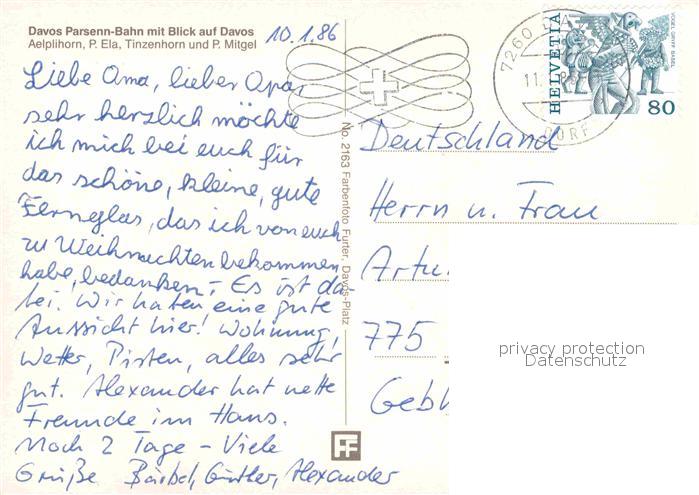 Davos Parsenn-Bahn mit Blick auf Davos
Aelplihorn, P. Ela, Tinzenhorn und P. Mitgel
10.1.86
Liebe Oma, lieber Opa,
sehr herzlich möchte
ich mich bei euch für
das schöne, kleine, gute
Fernglas, das ich von euch
zu Weihnachten bekommen
habe, bedanken. Es ist da-
bei. Wir haben eine gute
Aussicht hier! Wohnung,
Wetter, Pisten, alles sehr
gut. Alexander hat nette
Freunde im Haus.
Noch 2 Tage - Viele
Grüße Bärbel, Günther, Alexander
No. 2163 Farbenfoto Furter, Davos-Platz
7260
11.
DORF
HELVETIA
VOGEL GRYFF BASEL
80
Deutschland
Herrn u. Frau
Artu
775
Gebh
privacy protection
Datenschutz